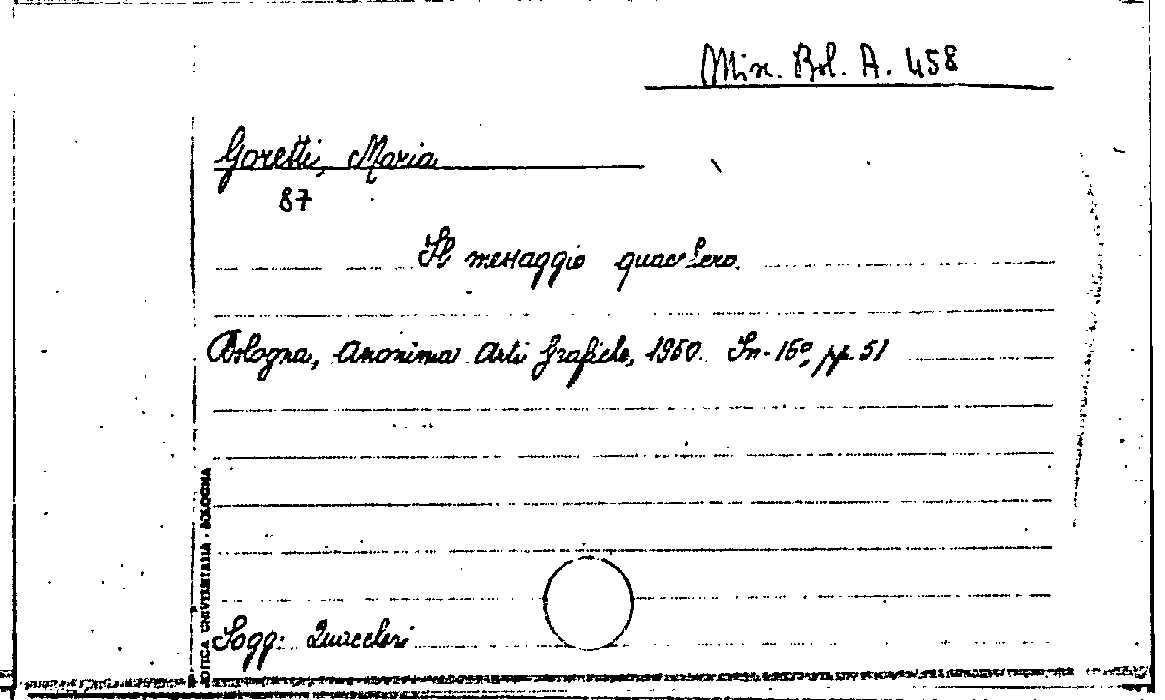 Misc. Bol. A. 458
Goretti, Maria
87
Il messaggio quacchero.
Bologna, Anonima Arti Grafiche, 1960. In-16°, pp. 51
Sogg: Quaccheri
OTECA UNIVERSITARIA - BOLOGNA